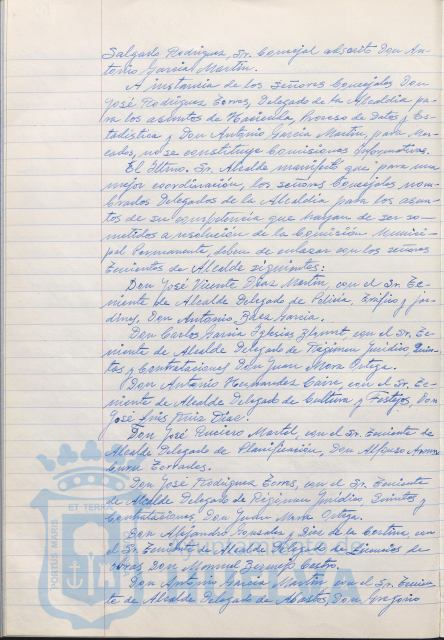 Salgado Rodríguez, Sr. Concejal adscrito Don An-
tonio García Martín.
A instancia de los Señores Concejales Don
José Rodríguez Torres, Delegado de la Alcaldía pa-
ra los asuntos de Hacienda, Proceso de Datos y Es-
tadística y Don Antonio García Martín, para Mer-
cados, no se constituye Comisiones Informativas.
El Iltmo. Sr. Alcalde manifestó que "para una
mejor coordinación, los señores Concejales nom-
brados Delegados de la Alcaldía para los asun-
tos de su competencia que hayan de ser so-
metidos a resolución de la Comisión Munici-
pal Permanente, deben de enlazar con los señores
Tenientes de Alcalde siguientes:
Don José Vicente Díaz Martín, con el Sr. Te-
niente de Alcalde Delegado de Policía, Tráfico y Jar-
dines, Don Antonio García.
Don Carlos García Iglesias, con el Sr. Te-
niente de Alcalde Delegado de Régimen Jurídico Quin-
tas y Contrataciones Don Juan Mora Ortega.
Don Antonio Hernández, con el Sr. Te-
niente de Alcalde Delegado de Cultura y Festejos, Don
José Luis Ruiz Díaz.
Don José Ruciero Martol, con el Sr. Teniente de
Alcalde Delegado de Planificación, Don Alfonso
Don José Rodríguez Torres, con el Sr. Teniente
de Alcalde Delegado de Régimen Jurídico Quintas y
Contrataciones Don Juan Mora Ortega.
Don Alejandro González y Díez de la Cortina, con
el Sr. Teniente de Alcalde Delegado de Licencias de
obras Don Manuel Bermejo Castro.
Don Antonio García Martín con el Sr. Tenien-
te de Alcalde Delegado de Abastos, Don Gregorio
ET TERRA
PORTUS MARIS